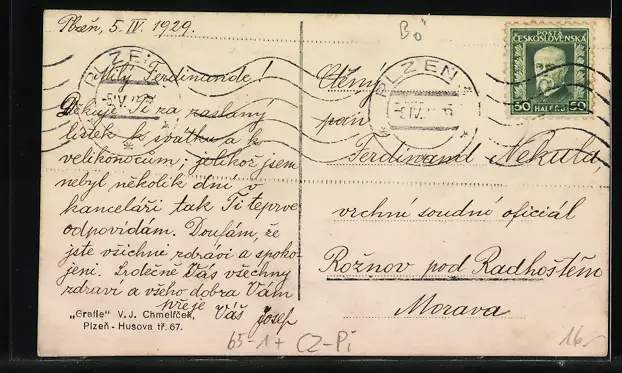 Plzeň, 5. IV. 1929.
Milý Ferdinande!
Děkuji Ti za zaslaný
lístek k svátku a k
velikonocům; jelikož jsem
nebyl několik dní v
kanceláři tak Ti teprve
odpovídám. Doufám, že
jste všichni zdrávi a spoko-
jeni. Srdečně Vás všechny
zdraví a všeho dobra Vám
přeje
Váš Josef
"Grafie" V. J. Chmelíček,
Plzeň - Husova tř. 67.
PLZEŇ
PLZEŇ
POSTA
ČESKOSLOVENSKÁ
50 HALÉŘŮ 50
Ctěný
pan
Ferdinand Nekula,
vrchní soudní oficiál
Rožnov pod Radhoštěm
Morava
65-1+ CZ-Pi
16,-